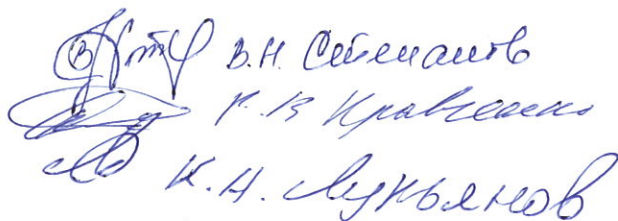 В.Н. Степанов
Г.В Кравченко
К.Н. Лукьянов